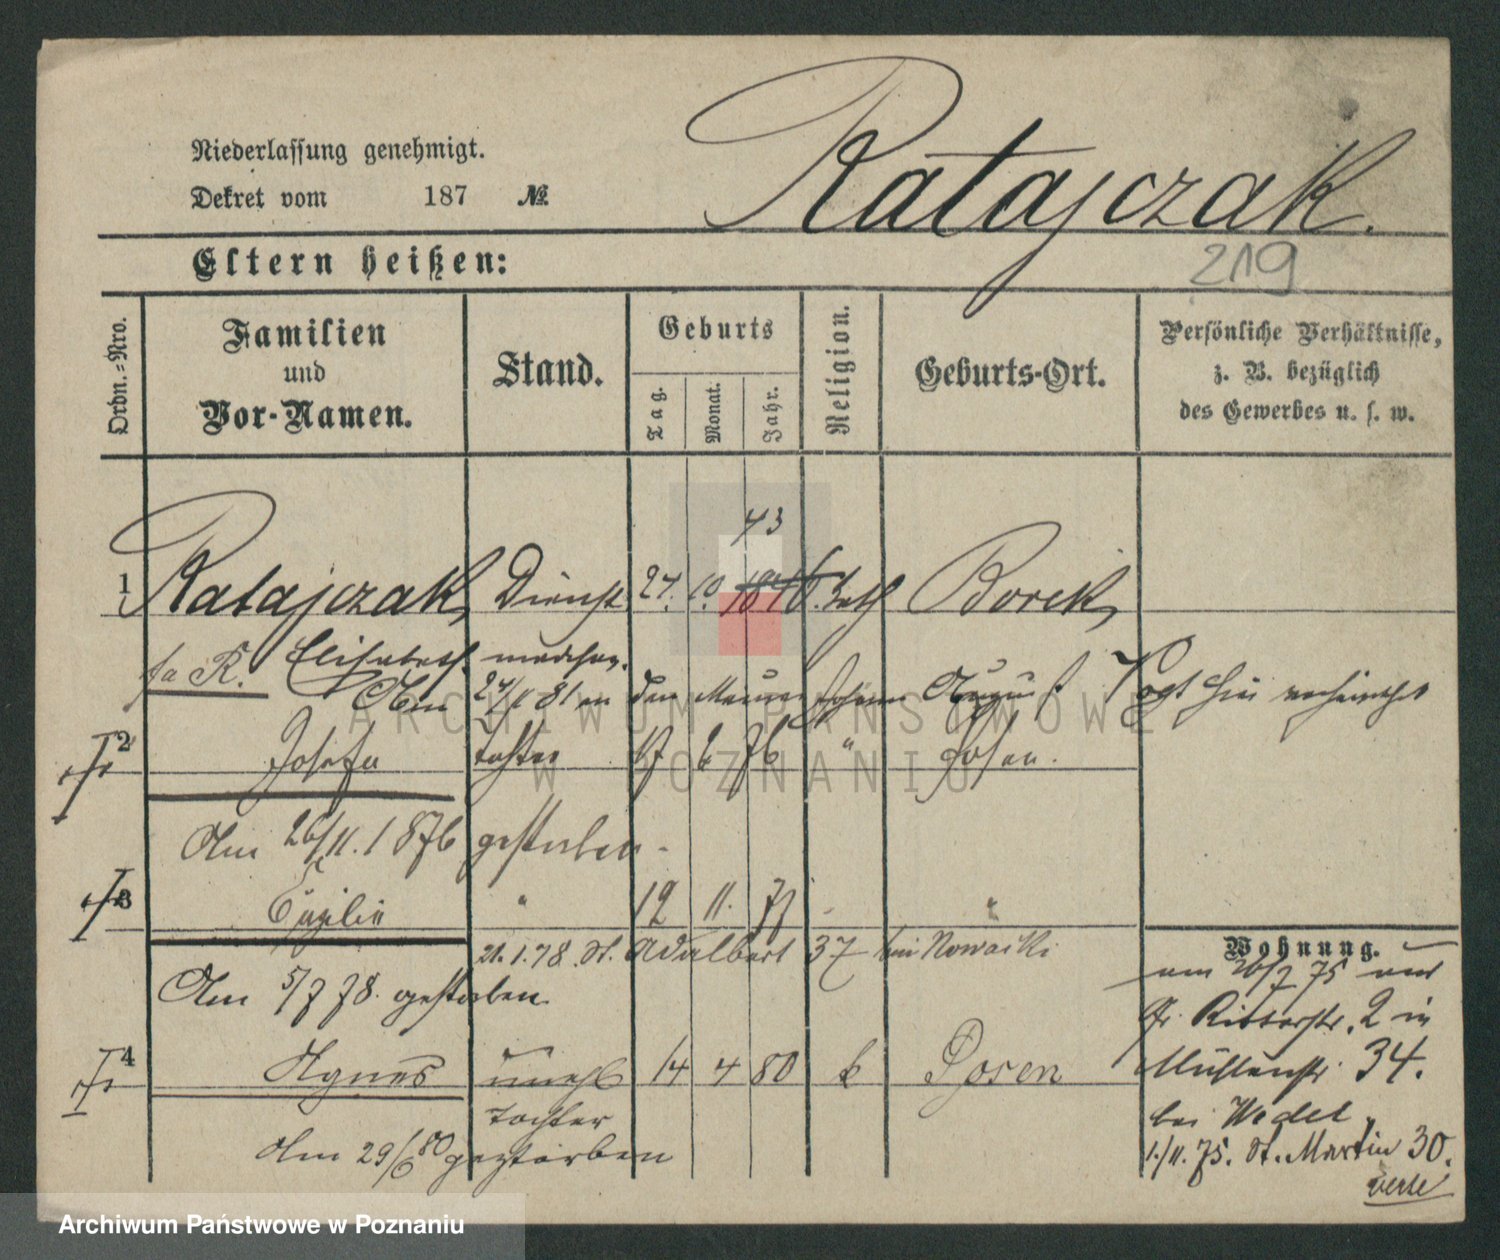 Ratajczak.
Niederlassung genehmigt.
Dekret vom 187 №
219
Eltern heißen:
Ordn.=Nro.
Familien
und
Vor-Namen.
Stand.
Geburts
Tag.
Monat.
Jahr.
Religion.
Geburts-Ort.
Persönliche Verhältnisse,
z. B. bezüglich
des Gewerbes u. s. w.
43
1 Ratajczak, Dienst 24. 10. 1846. kath Borek,
Elisabeth. mädchen.
Am 24/11 81 an den Maurer Johann August Vogt hier verheirathet
2 Josefa Tochter 17 6 76 " Posen.
Am 26/11. 1876 gestorben.
3 " 12 11. 77 "
21.1.78. St. Adalbert 37 bei Nowacki
Am 5/7 78. gestorben.
4 Agnes unehl 14 4 80 k Posen
Tochter
Am 29/6 80 gestorben
Wohnung.
am 26/7 75 von
Gr. Ritterstr. 2 in
Mühlenstr. 34.
bei Wedel
1./11. 75. St. Martin 30.
verte
ARCHIWUM PAŃSTWOWE
W POZNANIU
Archiwum Państwowe w Poznaniu